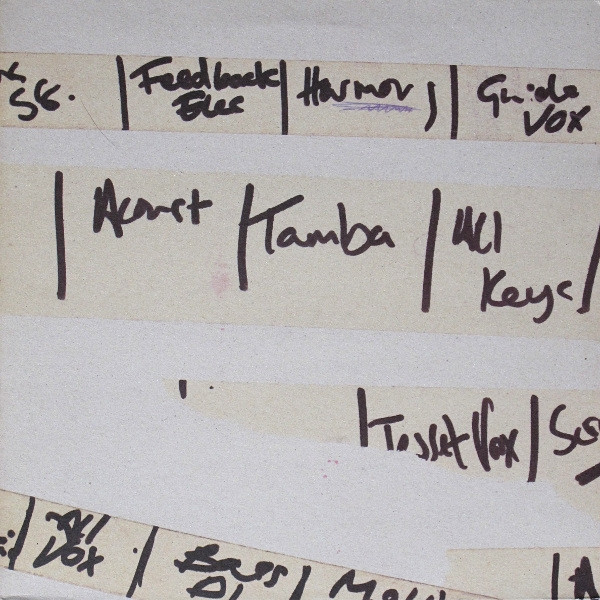 58. | Feedback Elec | Harmony | Guide Vox
| Acoust | Tamba | All Keys |
| Tosset Vox |
All Vox | Bass DI |